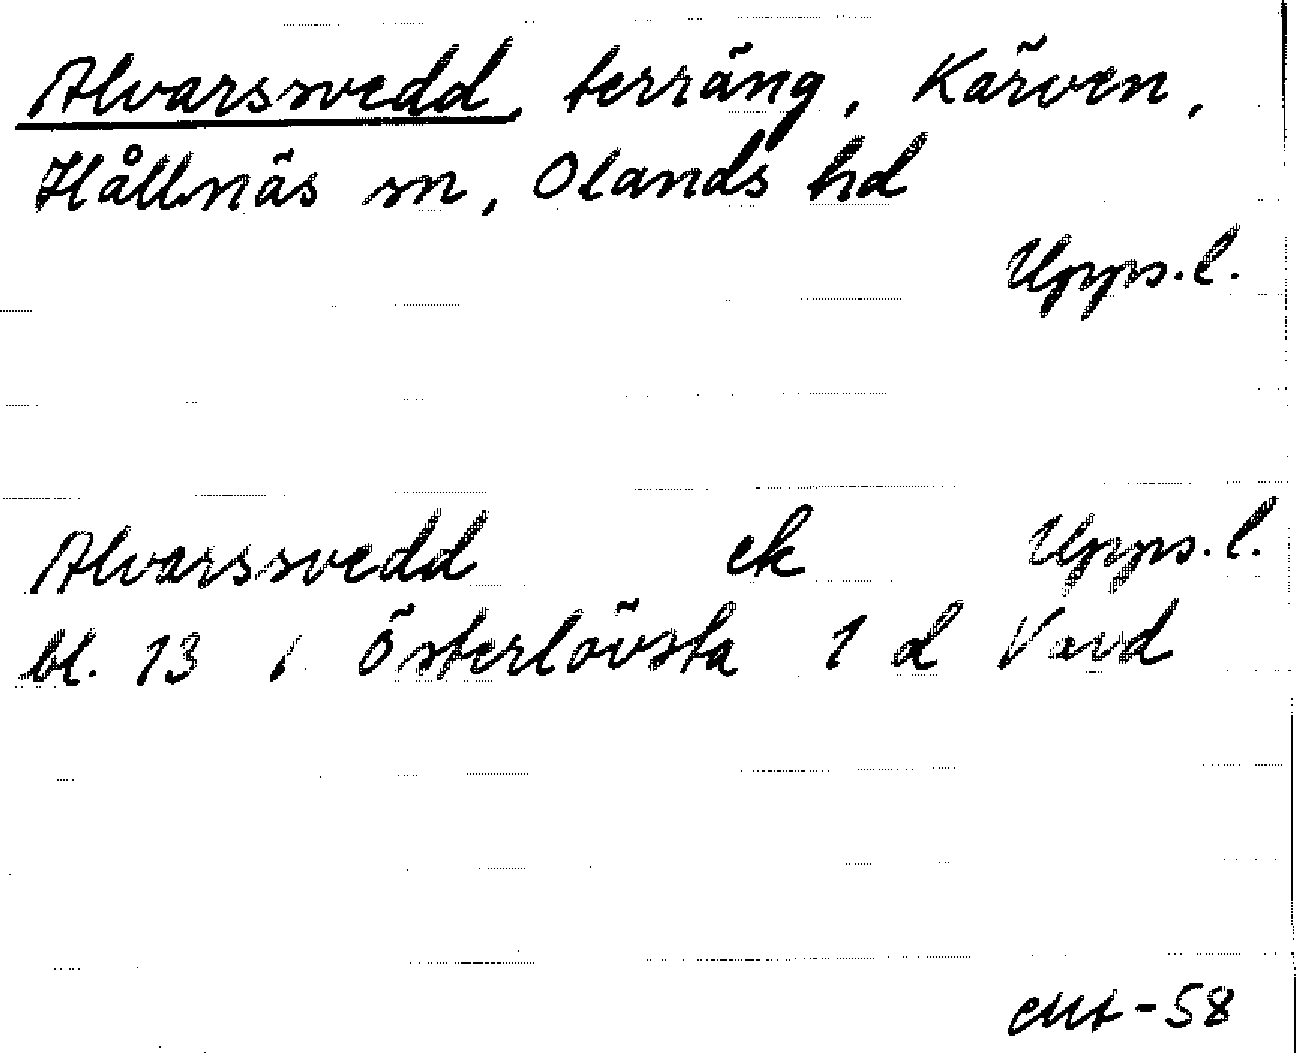 Alvarssvedd, terräng, Kärven,
Hållnäs sn, Olands hd
Upps.l.
Alvarssvedd ek Upps.l.
bl. 13 i Österlövsta 1 d Vavd
-58